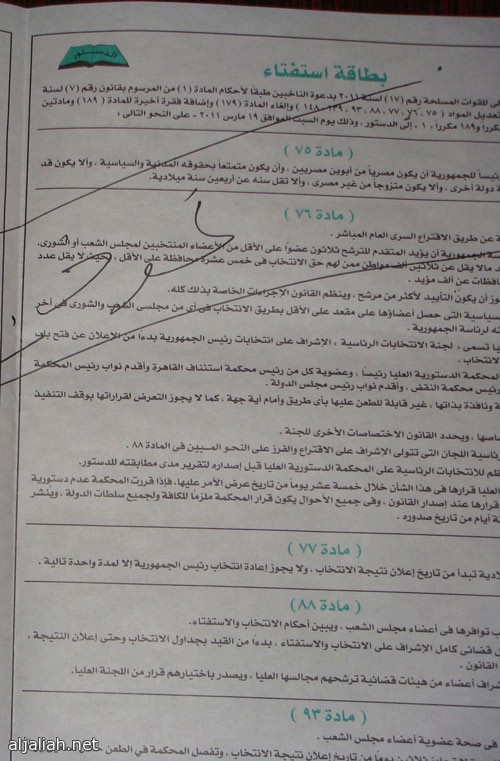 الدستور
بطاقة استفتاء
للقوات المسلحة رقم (١٧) لسنة ٢٠١١ بدعوة الناخبين طبقاً لأحكام المادة (١) من المرسوم بقانون رقم (٧) لسنة
تعديل المواد (٧٥ ، ٧٦ ، ٧٧ ، ٨٨ ، ٩٣ ، ١٣٩ ، ١٤٨) وإلغاء المادة (١٧٩) وإضافة فقرة أخيرة للمادة (١٨٩) ومادتين
و١٨٩ مكرراً ١ ، إلى الدستور ، وذلك يوم السبت الموافق ١٩ مارس ٢٠١١ - على النحو التالى :
( مادة ٧٥ )
رئيساً للجمهورية أن يكون مصرياً من أبوين مصريين ، وأن يكون متمتعاً بحقوقه المدنية والسياسية ، وألا يكون قد
دولة أخرى ، وألا يكون متزوجاً من غير مصرى ، وألا تقل سنه عن أربعين سنة ميلادية.
( مادة ٧٦ )
عن طريق الاقتراع السرى العام المباشر .
الجمهورية أن يؤيد المتقدم للترشح ثلاثون عضوًا على الأقل من الأعضاء المنتخبين لمجلس الشعب أو الشورى،
مالا يقل عن ثلاثين ألف مواطن ممن لهم حق الانتخاب فى خمس عشرة محافظة على الأقل ، بحيث لا يقل عدد
عن ألف مؤيد .
أن يكون التأييد لأكثر من مرشح ، وينظم القانون الإجراءات الخاصة بذلك كله.
السياسية التى حصل أعضاؤها على مقعد على الأقل بطريق الانتخاب فى أى من مجلسى الشعب والشورى فى آخر
لرئاسة الجمهورية .
تسمى ، لجنة الانتخابات الرئاسية ، الإشراف على انتخابات رئيس الجمهورية بدءاً من الإعلان عن فتح باب
الانتخاب .
المحكمة الدستورية العليا رئيساً ، وعضوية كل من رئيس محكمة استئناف القاهرة وأقدم نواب رئيس المحكمة
رئيس محكمة النقض ، وأقدم نواب رئيس مجلس الدولة .
ونافذة بذاتها ، غير قابلة للطعن عليها بأى طريق وأمام أية جهة ، كما لا يجوز التعرض لقراراتها بوقف التنفيذ
ويحدد القانون الاختصاصات الأخرى للجنة .
اللجان التى تتولى الإشراف على الاقتراع والفرز على النحو المبين فى المادة ٨٨ .
للانتخابات الرئاسية على المحكمة الدستورية العليا قبل إصداره لتقرير مدى مطابقته للدستور.
العليا قرارها فى هذا الشأن خلال خمسة عشر يوماً من تاريخ عرض الأمر عليها، فإذا قررت المحكمة عدم دستورية
قرارها عند إصدار القانون ، وفى جميع الأحوال يكون قرار المحكمة ملزماً للكافة ولجميع سلطات الدولة ، وينشر
أيام من تاريخ صدوره .
( مادة ٧٧ )
تبدأ من تاريخ إعلان نتيجة الانتخاب ، ولا يجوز إعادة انتخاب رئيس الجمهورية إلا لمدة واحدة تالية .
( مادة ٨٨ )
توافرها فى أعضاء مجلس الشعب ، ويبين أحكام الانتخاب والاستفتاء.
قضائى كامل الإشراف على الانتخاب والاستفتاء ، بدءاً من القيد بجداول الانتخاب وحتى إعلان النتيجة ,
القانون .
أعضاء من هيئات قضائية ترشحهم مجالسها العليا ، ويصدر باختيارهم قرار من اللجنة العليا.
( مادة ٩٣ )
فى صحة عضوية أعضاء مجلس الشعب .
يوماً من تاريخ إعلان نتيجة الانتخاب ، وتفصل المحكمة في الطعن
aljaliah.net